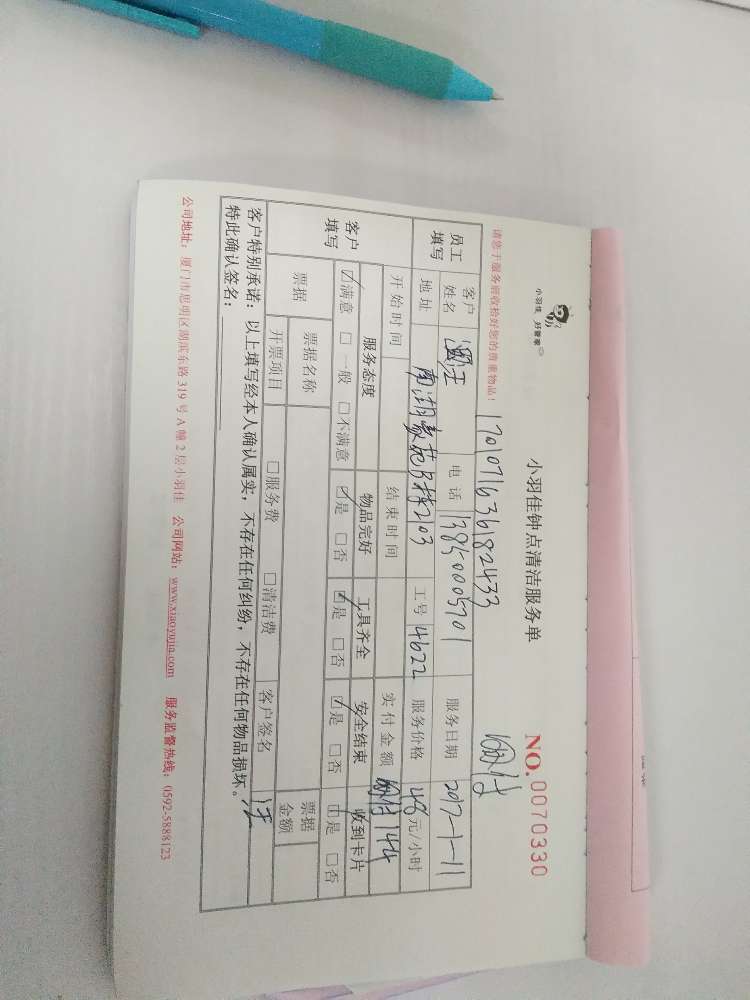 小羽佳 好管家
小羽佳钟点清洁服务单
NO. 0070330
170107163618 2433
网付
请您于服务前收拾好您的贵重物品！
员工填写 客户姓名 汪 电话 13850005701 服务日期 2017-1-11
地址 南湖豪苑B栋703 工号 4622 服务价格 48元/小时
开始时间 结束时间 实付金额 网付144
客户填写 服务态度 物品完好 工具齐全 安全结束 收到卡片
☑满意 □一般 □不满意 ☑是 □否 ☑是 □否 ☑是 □否 ☑是 □否
票据 票据名称 票据金额
开票项目 □服务费 □清洁费 客户签名 汪
客户特别承诺：以上填写经本人确认属实，不存在任何纠纷，不存在任何物品损坏。
特此确认签名：
公司地址：厦门市思明区湖滨东路319号A幢2层小羽佳 公司网站：www.xiaoyujia.com 服务监督热线：0592-5888123